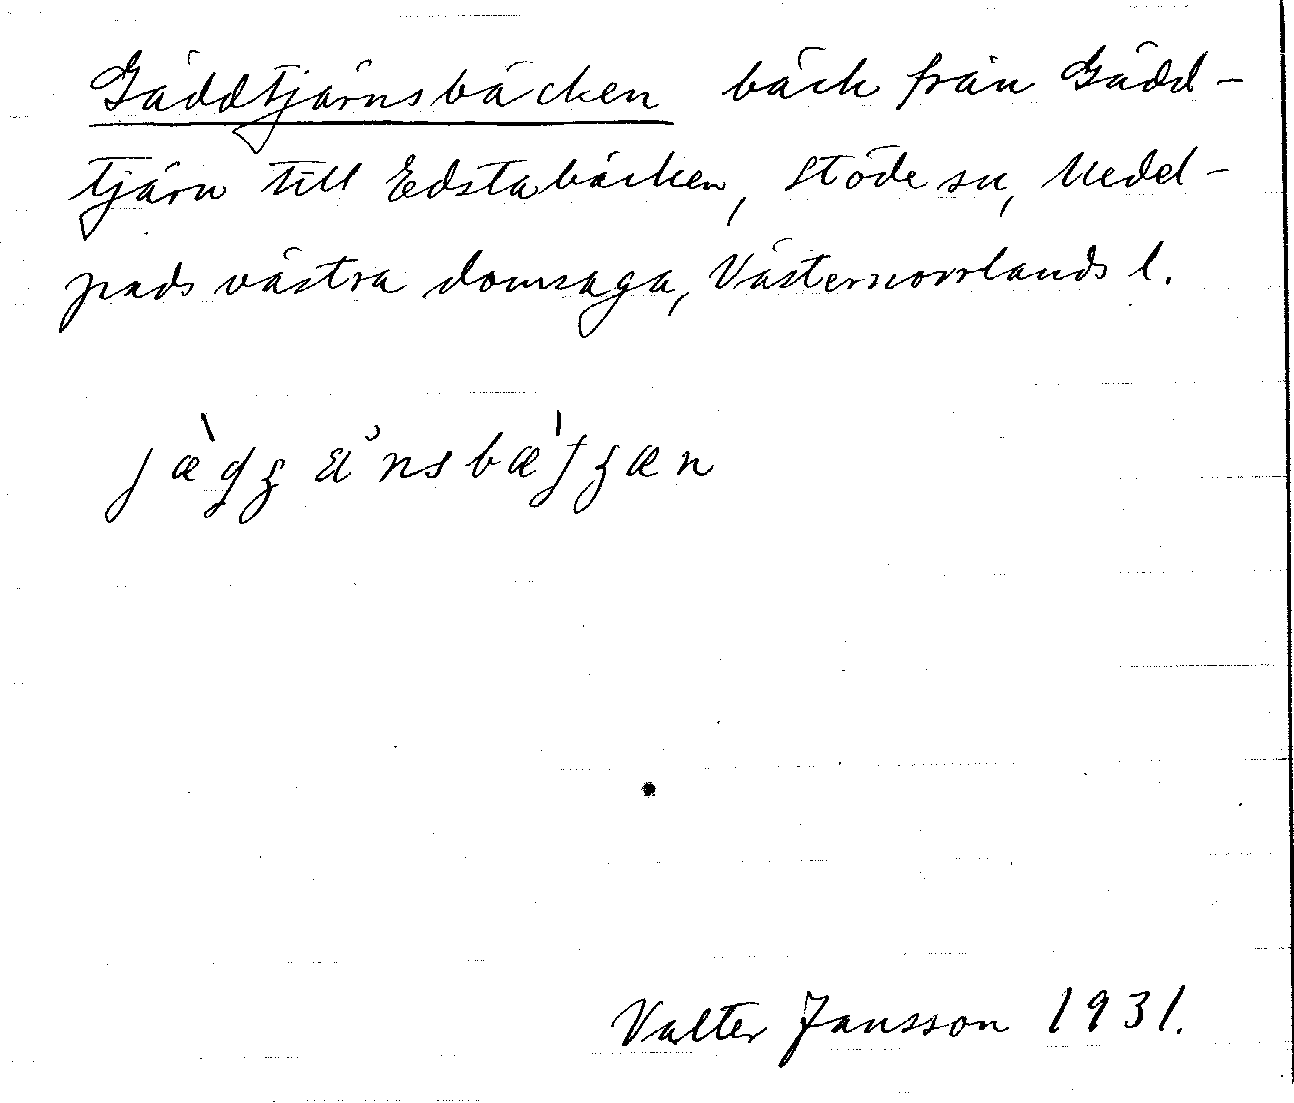 Gäddtjärnsbäcken bäck från Gädd-
tjärn till Edstabäcken, Stöde sn, Medel-
pads västra domsaga, Västernorrlands l.
Valter Jansson 1931.